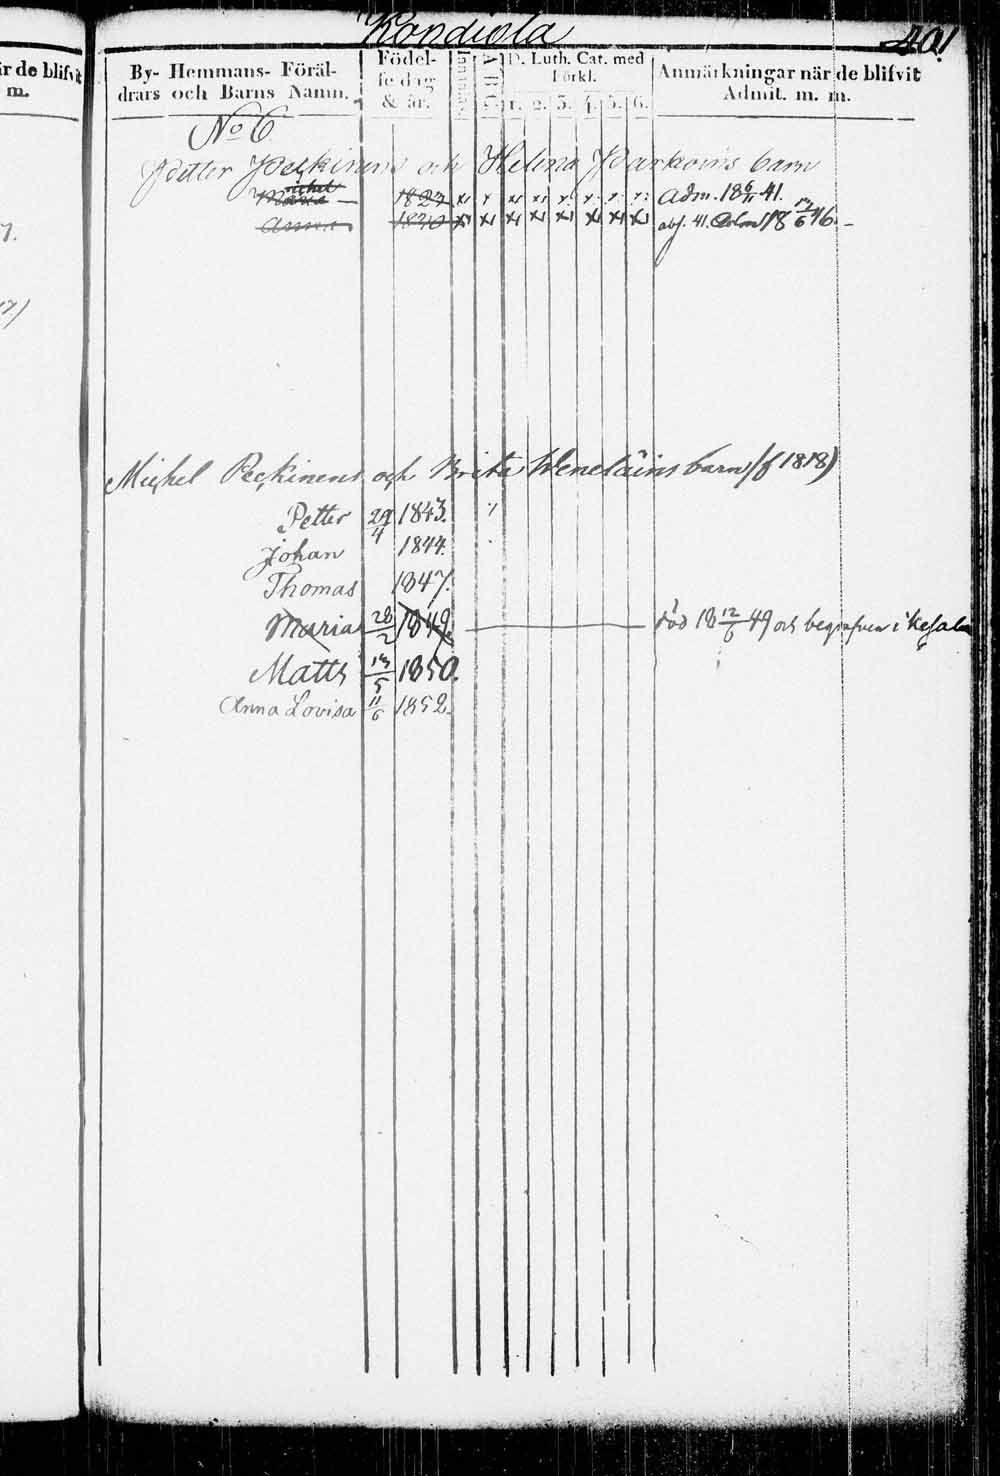 Kondiola
401
är de blifvit
m.
By- Hemmans- Föräl-
drars och Barns Namn.
Födel-
se dag
& år.
Innanläs.
A B C
D. Luth. Cat. med
Förkl.
1. 2. 3. 4. 5. 6.
Anmärkningar när de blifvit
Admit. m. m.
No 6
Petter Peckinens och Helena Parkoins barn
Michel
Maria 1823 Adm. 18 6/11 41.
Anna 1830 abs. 41. 18 6 46.
Michel Peckinens och Brita Weneläins barn (f 1818)
Petter 29/4 1843.
Johan 1844.
Thomas 1847.
Maria 28/2 1849. död 18 12/6 49 och begrafven i Kesala
Matts 13/5 1850.
Anna Lovisa 11/6 1852.